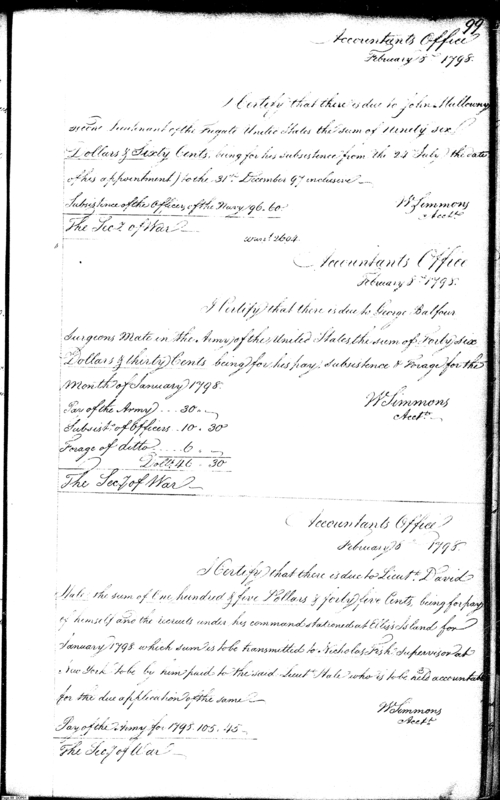 99
Accountants Office
February 5th 1798.
I Certify that there is due to John Mullowny
second Lieutenant of the Frigate United States the sum of ninety six
Dollars & Sixty Cents, being for his subsistence from the 24 July (the date
of his appointment) to the 31st December 97 inclusive
Subsistence of the Officers of the Navy 96.60
Wm Simmons
Acctt
The Secy of War
Warrt 2604
Accountants Office
February 5th 1798.
I Certify that there is due to George Balfour
Surgeons Mate in the Army of the United States the sum of Forty six
Dollars & thirty Cents being for his pay, subsistence & Forage for the
Month of January 1798.
Pay of the Army ... 30. "
Wm Simmons
Acctt
Subsistce of Officers . 10 . 30
Forage of ditto ..... 6 . "
Dolls 46 . 30
The Secy of War
Accountants Office
February 1798.
I Certify that there is due to Lieutt David
Hale, the sum of One hundred & five Dollars & forty five Cents, being for pay
of himself and the recruits under his command stationed at Island for
January 1798 which sum is to be transmitted to Nicholas Fish Supervisor at
New York to be by him paid to the said Lieut Hale who is to be held accountable
for the due application of the same
Wm Simmons
Acctt
Pay of the Army for 1798. 105.45
The Secy of War